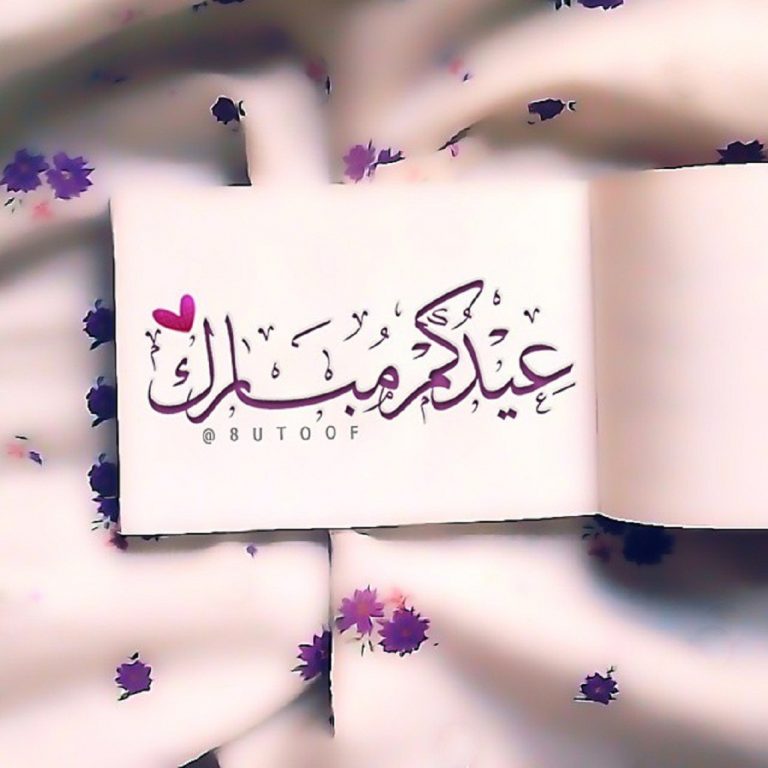 عيدكم مُبارك
@8UTOOF